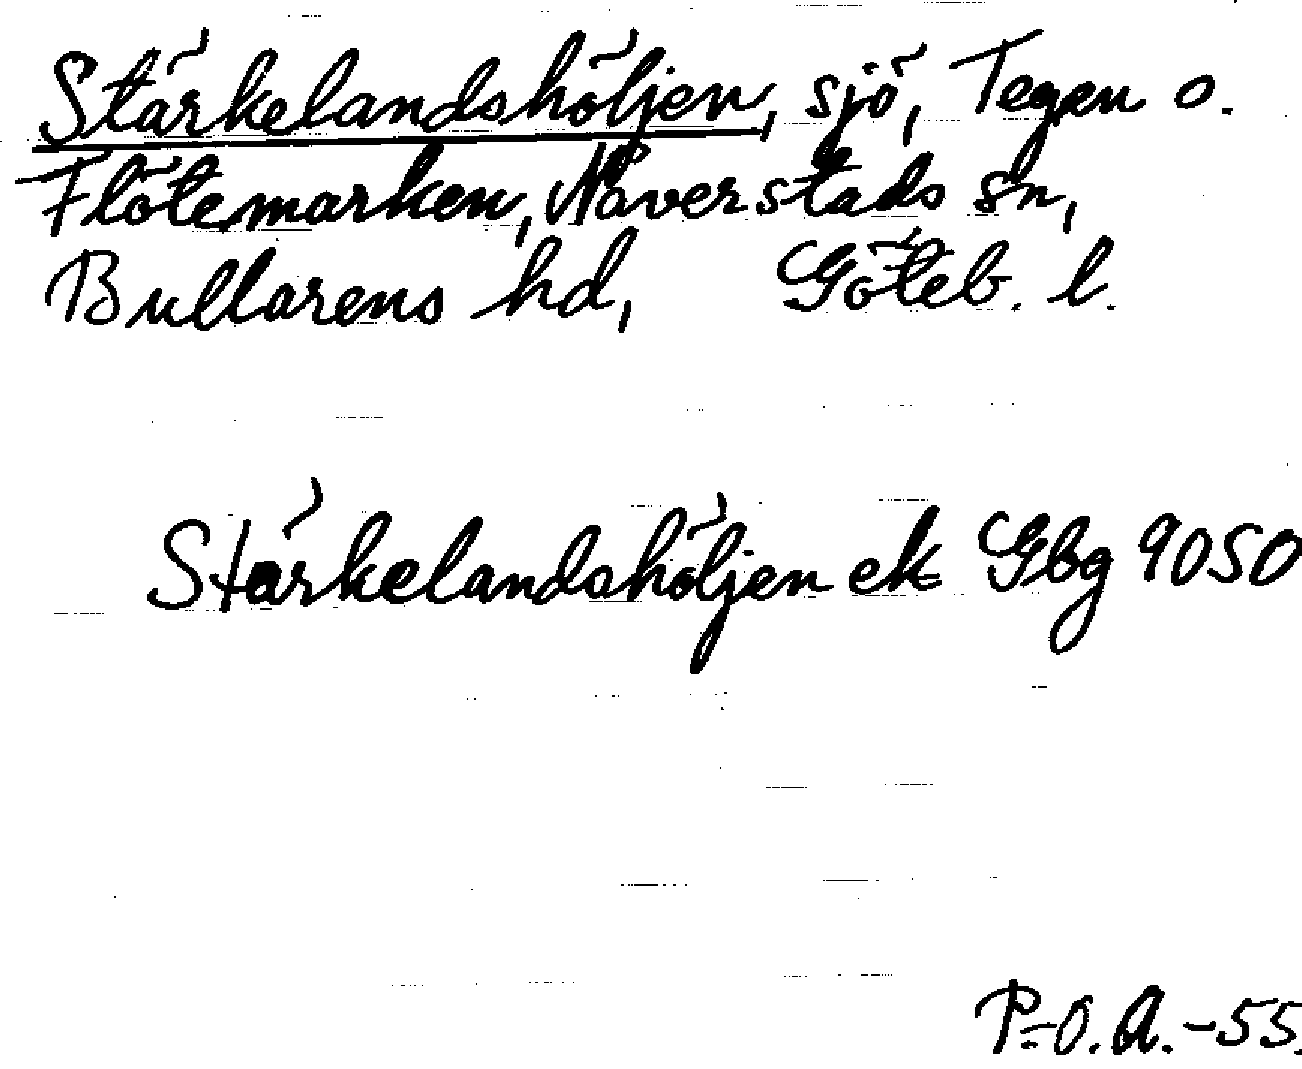 Stärkelandshöljen, sjö, Tegen o.
Flötemarken, Naverstads sn,
Bullarens hd, Göteb. l.
Stärkelandshöljen ek Gbg 9050
P-O. A. -55.